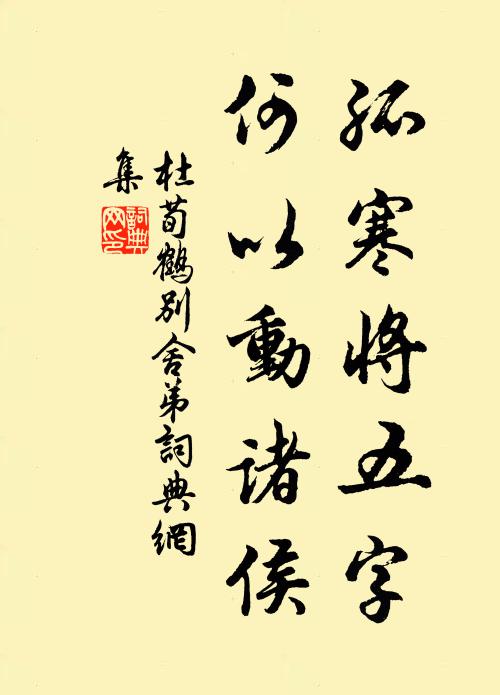 孤寒將五字
何以動諸侯
杜荀鶴別舍弟詞典網
集
詞典
网印